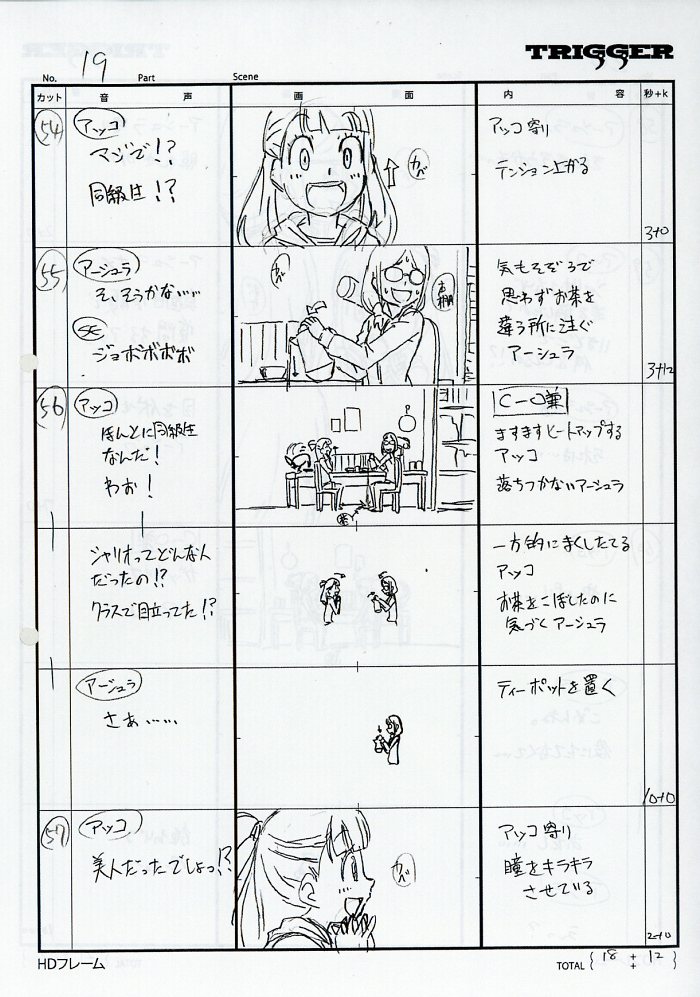 TRIGGER
No. 19 Part Scene
カット 音 声 画 面 内 容 秒+k
54 アッコ
マジで!?
同級生!?
アッコ寄り
テンション上がる
3+0
55 アーシュラ
そ、そうかな……
SE
ジョボボボボ
気もそぞろで
思わずお茶を
違う所に注ぐ
アーシュラ
3+12
56 アッコ
ほんとに同級生
なんだ!
わお!
ますますヒートアップする
アッコ
落ちつかないアーシュラ
シャリオってどんな人
だったの!?
クラスで目立ってた!?
一方的にまくしたてる
アッコ
お茶をこぼしたのに
気づくアーシュラ
アーシュラ
さぁ……
ティーポットを置く
10+0
57 アッコ
美人だったでしょっ!?
アッコ寄り
瞳をキラキラ
させている
2+0
HDフレーム
TOTAL { 18 + 12 }